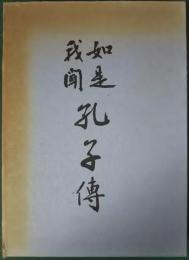 如是我聞
孔子傳